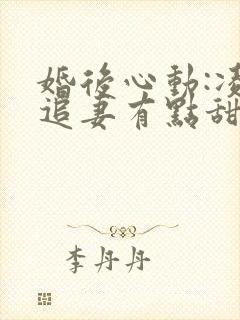 婚後心動:凌
追妻有點甜
李丹丹